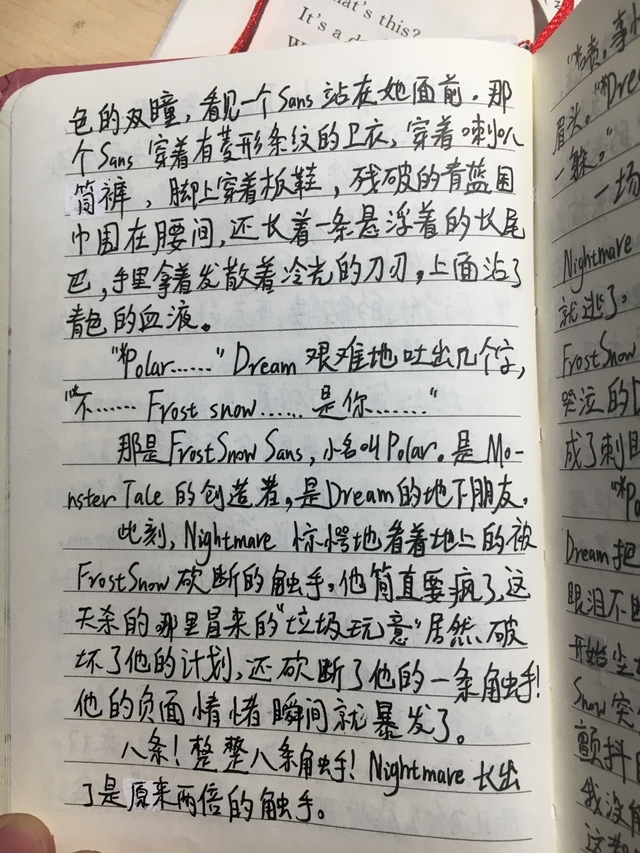 hat's this?
It's a d
W
色的双瞳，看见一个Sans 站在她面前。那
个Sans 穿着有菱形条纹的卫衣，穿着喇叭
筒裤，脚上穿着板鞋，残破的青蓝围
巾围在腰间，还长着一条悬浮着的长尾
巴，手里拿着发散着冷光的刀刃，上面沾了
青色的血液。
"*Polar……" Dream 艰难地吐出几个字，
"*不…… Frost snow…… 是你……"
那是FrostSnow Sans，小名叫Polar。是Mo-
nster Tale 的创造者，是Dream的地下朋友。
此刻，Nightmare 惊愕地看着地上的被
FrostSnow 砍断的触手。他简直要疯了，这
天杀的哪里冒来的"垃圾玩意"居然破
坏了他的计划，还砍断了他的一条触手！
他的负面情绪瞬间就暴发了。
八条！整整八条触手！Nightmare 长出
了是原来两倍的触手。
眉头。"Dre
一躲。"
一场
Nightmare
就逃了。
FrostSnow
哭泣的D
成了刺目
"*Po
Dream 把
眼泪不断
开始
Snow 突
颤抖的
我没能
这